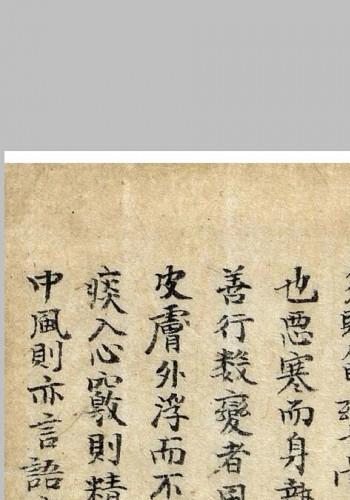 也悪寒而身熱
善行数變者
皮膚外浮而不
痰入心竅則精
中風則亦言語